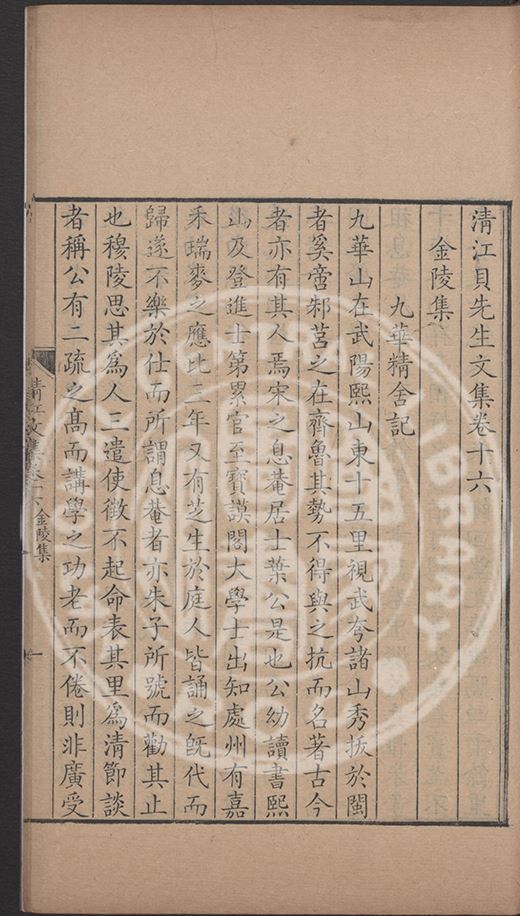 清江貝先生文集卷十六
金陵集
九華精舍記
九華山在武陽熙山東十五里視武夸諸山秀拔於閩
者奚啻邾莒之在齊魯其勢不得與之抗而名著古今
者亦有其人焉宋之息菴居士葉公是也公幼讀書熙
山及登進士第累官至寳謨閣大學士出知處州有嘉
禾瑞麥之應比三年又有芝生於庭人皆誦之旣代而
歸遂不樂於仕而所謂息菴者亦朱子所號而勸其止
也穆陵思其爲人三遣使徵不起命表其里爲清節談
者稱公有二疏之髙而講學之功老而不倦則非廣受
清江文集卷十六 金陵集 一